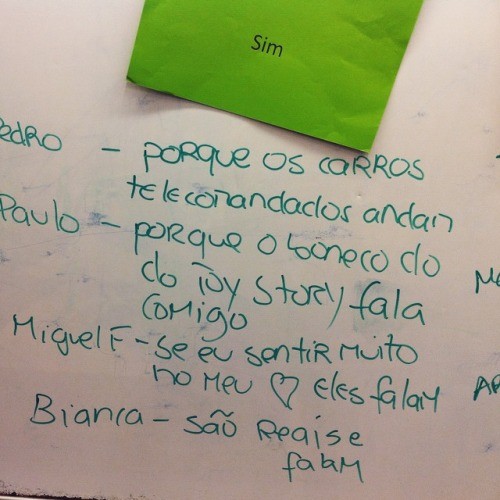 Sim
Pedro - porque os carros
telecomandados andam
Paulo - porque o boneco do
do Toy Story fala
comigo
Miguel F - se eu sentir muito
no meu ♡ eles falam
Bianca - são reais e
falam